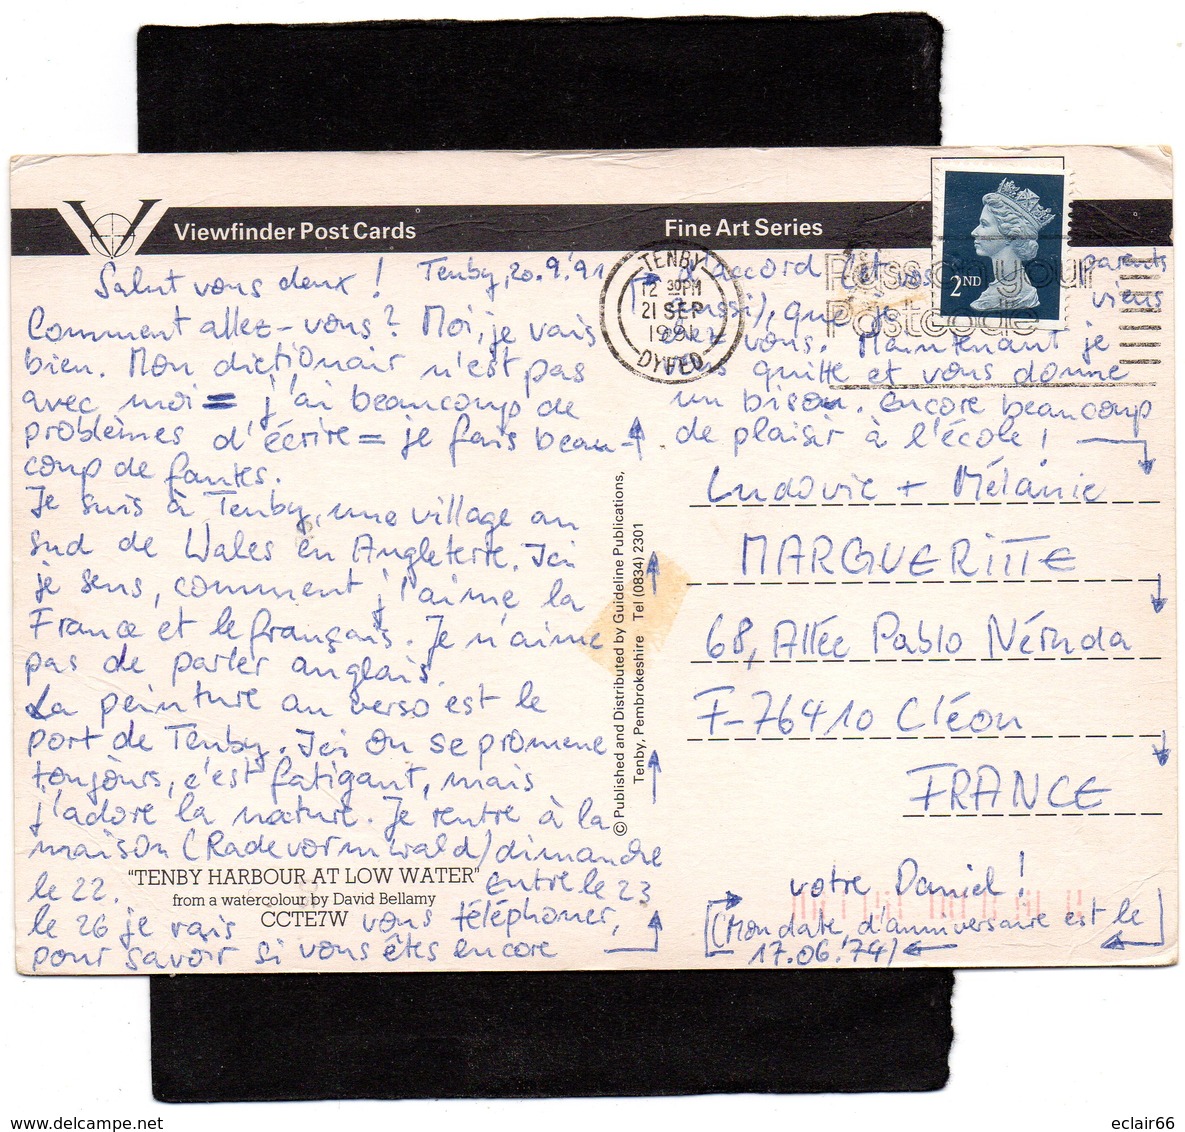 Viewfinder Post Cards
Fine Art Series
Salut vous deux ! Tenby, 20.9.'91
Comment allez-vous? Moi, je vais
bien. Mon dictionair n'est pas
avec moi = j'ai beaucoup de
problèmes d'écrire = je fais beau-
coup de fautes.
Je suis à Tenby, une village au
sud de Wales en Angleterre. Ici
je sens, comment j'aime la
France et le français. Je n'aime
pas de parler anglais.
La peinture au verso est le
port de Tenby. Ici on se promene
toujours, c'est fatigant, mais
j'adore la nature. Je rentre à la
maison (Radevormwald) dimanche
le 22. Entre le 23
le 26 je vais vous téléphoner,
pour savoir si vous êtes encore
"TENBY HARBOUR AT LOW WATER"
from a watercolour by David Bellamy
CCTE7W
© Published and Distributed by Guideline Publications,
Tenby, Pembrokeshire Tel (0834) 2301
TENBY
12 30PM
21 SEP
1991
DYFED
Pass on your
Postcode
2ND
d'accord (et vos parents
aussi), que je viens
chez vous. Maintenant je
vous quitte et vous donne
un bisou. Encore beaucoup
de plaisir à l'école !
Ludovic + Mélanie
MARGUERITTE
68, Allée Pablo Néruda
F-76410 Cléon
FRANCE
votre Daniel !
(Mon date d'anniversaire est le
17.06.'74)
delcampe.net
eclair66